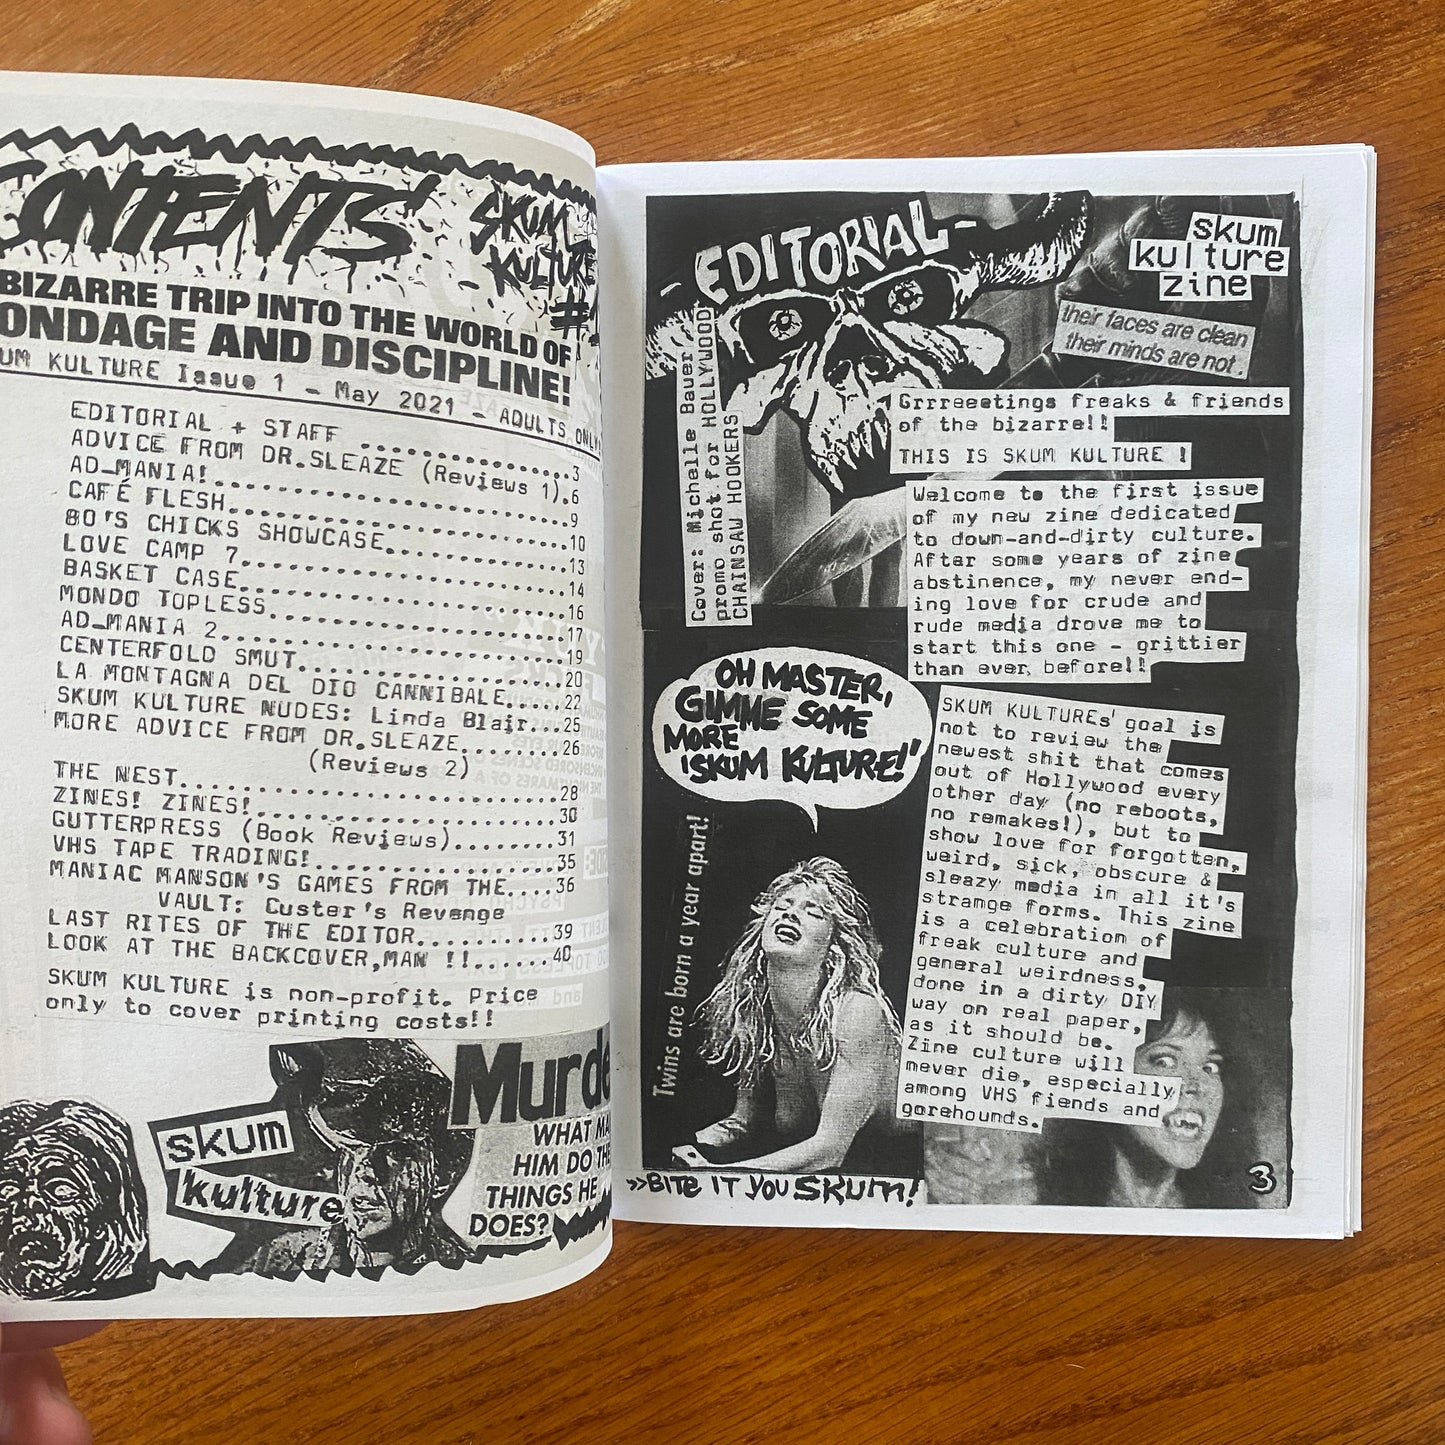 CONTENTS
SKUM
KULTURE
BIZARRE TRIP INTO THE WORLD OF
ONDAGE AND DISCIPLINE!
UM KULTURE Issue 1 - May 2021 - ADULTS ONLY
EDITORIAL + STAFF ..................3
ADVICE FROM DR.SLEAZE (Reviews 1).6
AD-MANIA!..........................9
CAFÉ FLESH.........................10
80'S CHICKS SHOWCASE...............13
LOVE CAMP 7........................14
BASKET CASE........................16
MONDO TOPLESS......................17
AD-MANIA 2.........................19
CENTERFOLD SMUT....................20
LA MONTAGNA DEL DIO CANNIBALE.....22
SKUM KULTURE NUDES: Linda Blair...25
MORE ADVICE FROM DR.SLEAZE........26
(Reviews 2)
THE NEST...........................28
ZINES! ZINES!......................30
GUTTERPRESS (Book Reviews)........31
VHS TAPE TRADING!..................35
MANIAC MANSON'S GAMES FROM THE....36
VAULT: Custer's Revenge
LAST RITES OF THE EDITOR..........39
LOOK AT THE BACKCOVER,MAN !!......40
SKUM KULTURE is non-profit. Price
only to cover printing costs!!
skum
kulture
Murde
WHAT MA
HIM DO THE
THINGS HE
DOES?
-EDITORIAL-
skum
kulture
zine
their faces are clean
their minds are not.
Cover: Michelle Bauer
promo shot for HOLLYWOOD
CHAINSAW HOOKERS
Grrreeetings freaks & friends
of the bizarre!!
THIS IS SKUM KULTURE !
Welcome to the first issue
of my new zine dedicated
to down-and-dirty culture.
After some years of zine
abstinence, my never end-
ing love for crude and
rude media drove me to
start this one - grittier
than ever before!!
OH MASTER,
GIMME SOME
MORE
'SKUM KULTURE!'
Twins are born a year apart!
SKUM KULTUREs' goal is
not to review the
newest shit that comes
out of Hollywood every
other day (no reboots,
no remakes!), but to
show love for forgotten,
weird, sick, obscure &
sleazy media in all it's
strange forms. This zine
is a celebration of
freak culture and
general weirdness,
done in a dirty DIY
way on real paper,
as it should be.
Zine culture will
never die, especially
among VHS fiends and
gorehounds.
>>BITE IT YOU SKUM!
3